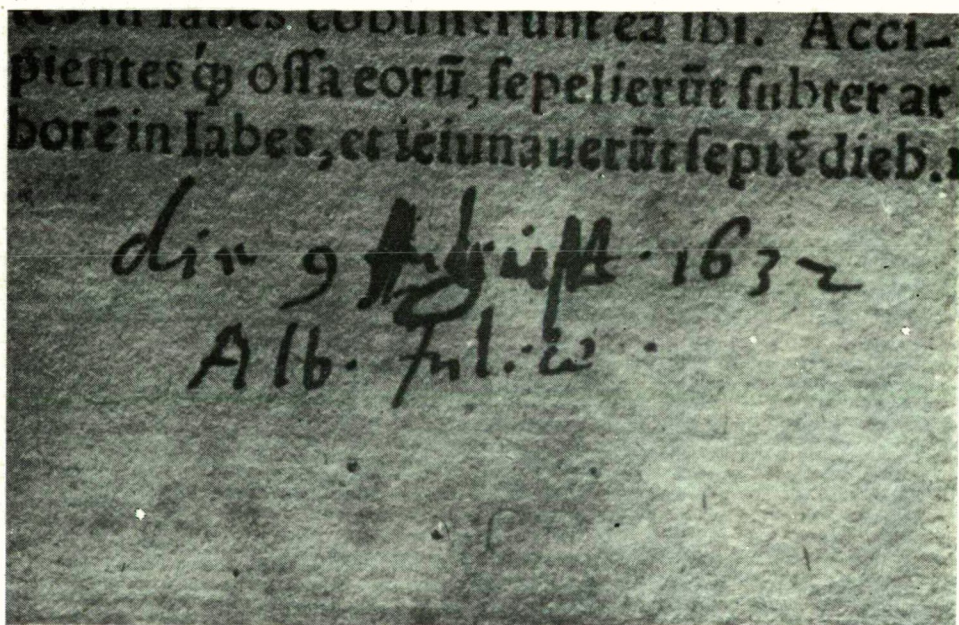 in Iabes cobusserunt ea ibi. Acci-
pientesq́ꝫ ossa eorū, sepelierūt subter ar
borē in Iabes, et ieiunauerūt septē dieb.
die 9 Augusti 1632
Alb. Juliæ.